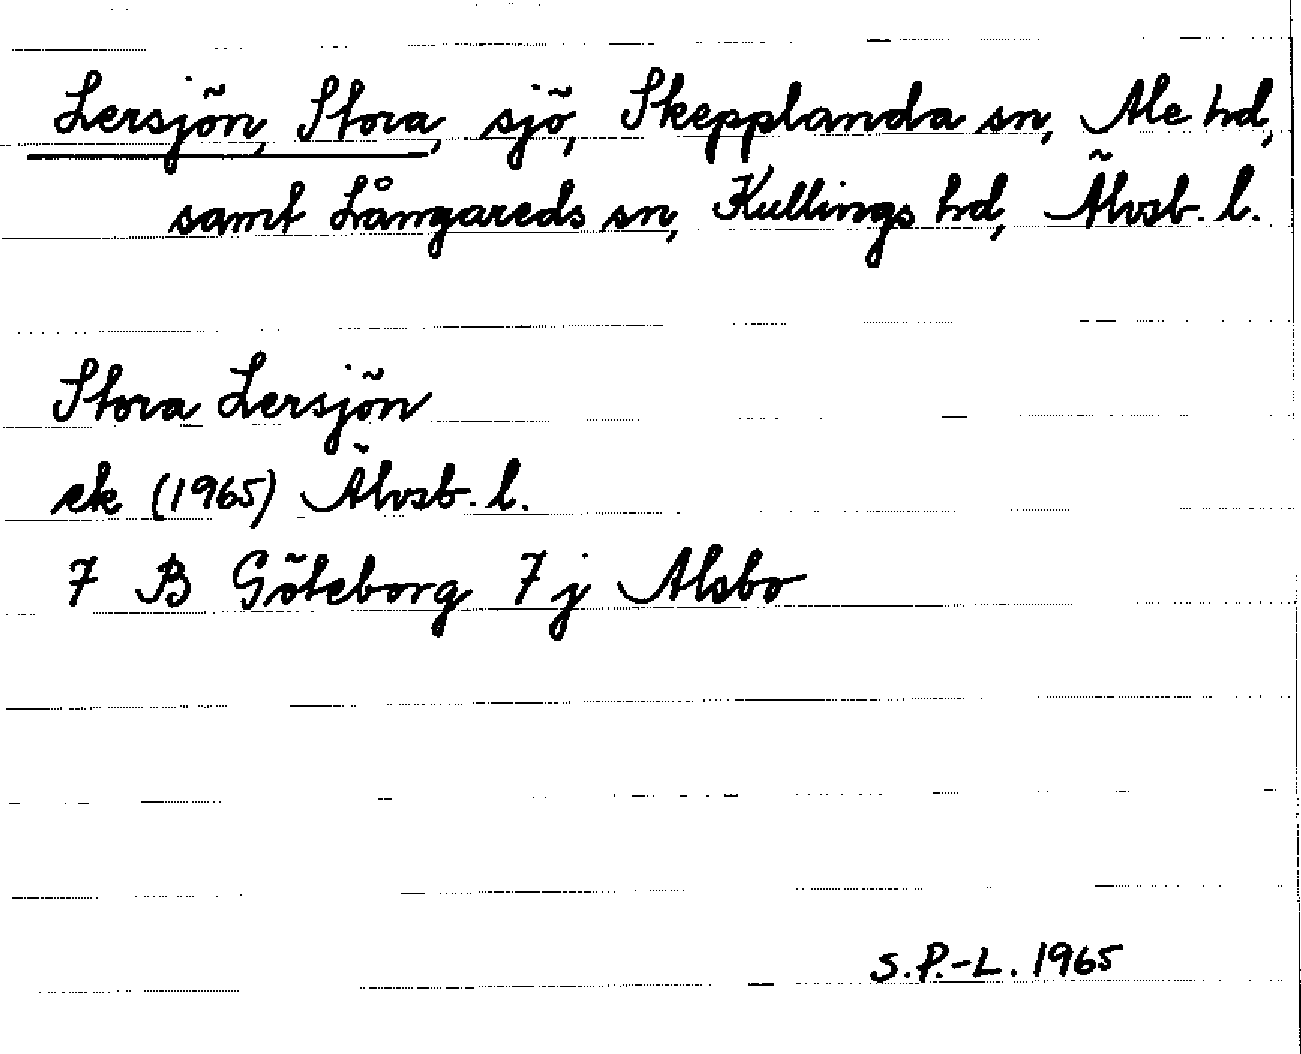 Lersjön, Stora, sjö, Skepplanda sn, Ale hd,
samt Långareds sn, Kullings hd, Älvsb. l.
Stora Lersjön
ek (1965) Älvsb. l.
7 B Göteborg 7 j Alsbo
S.P.-L. 1965